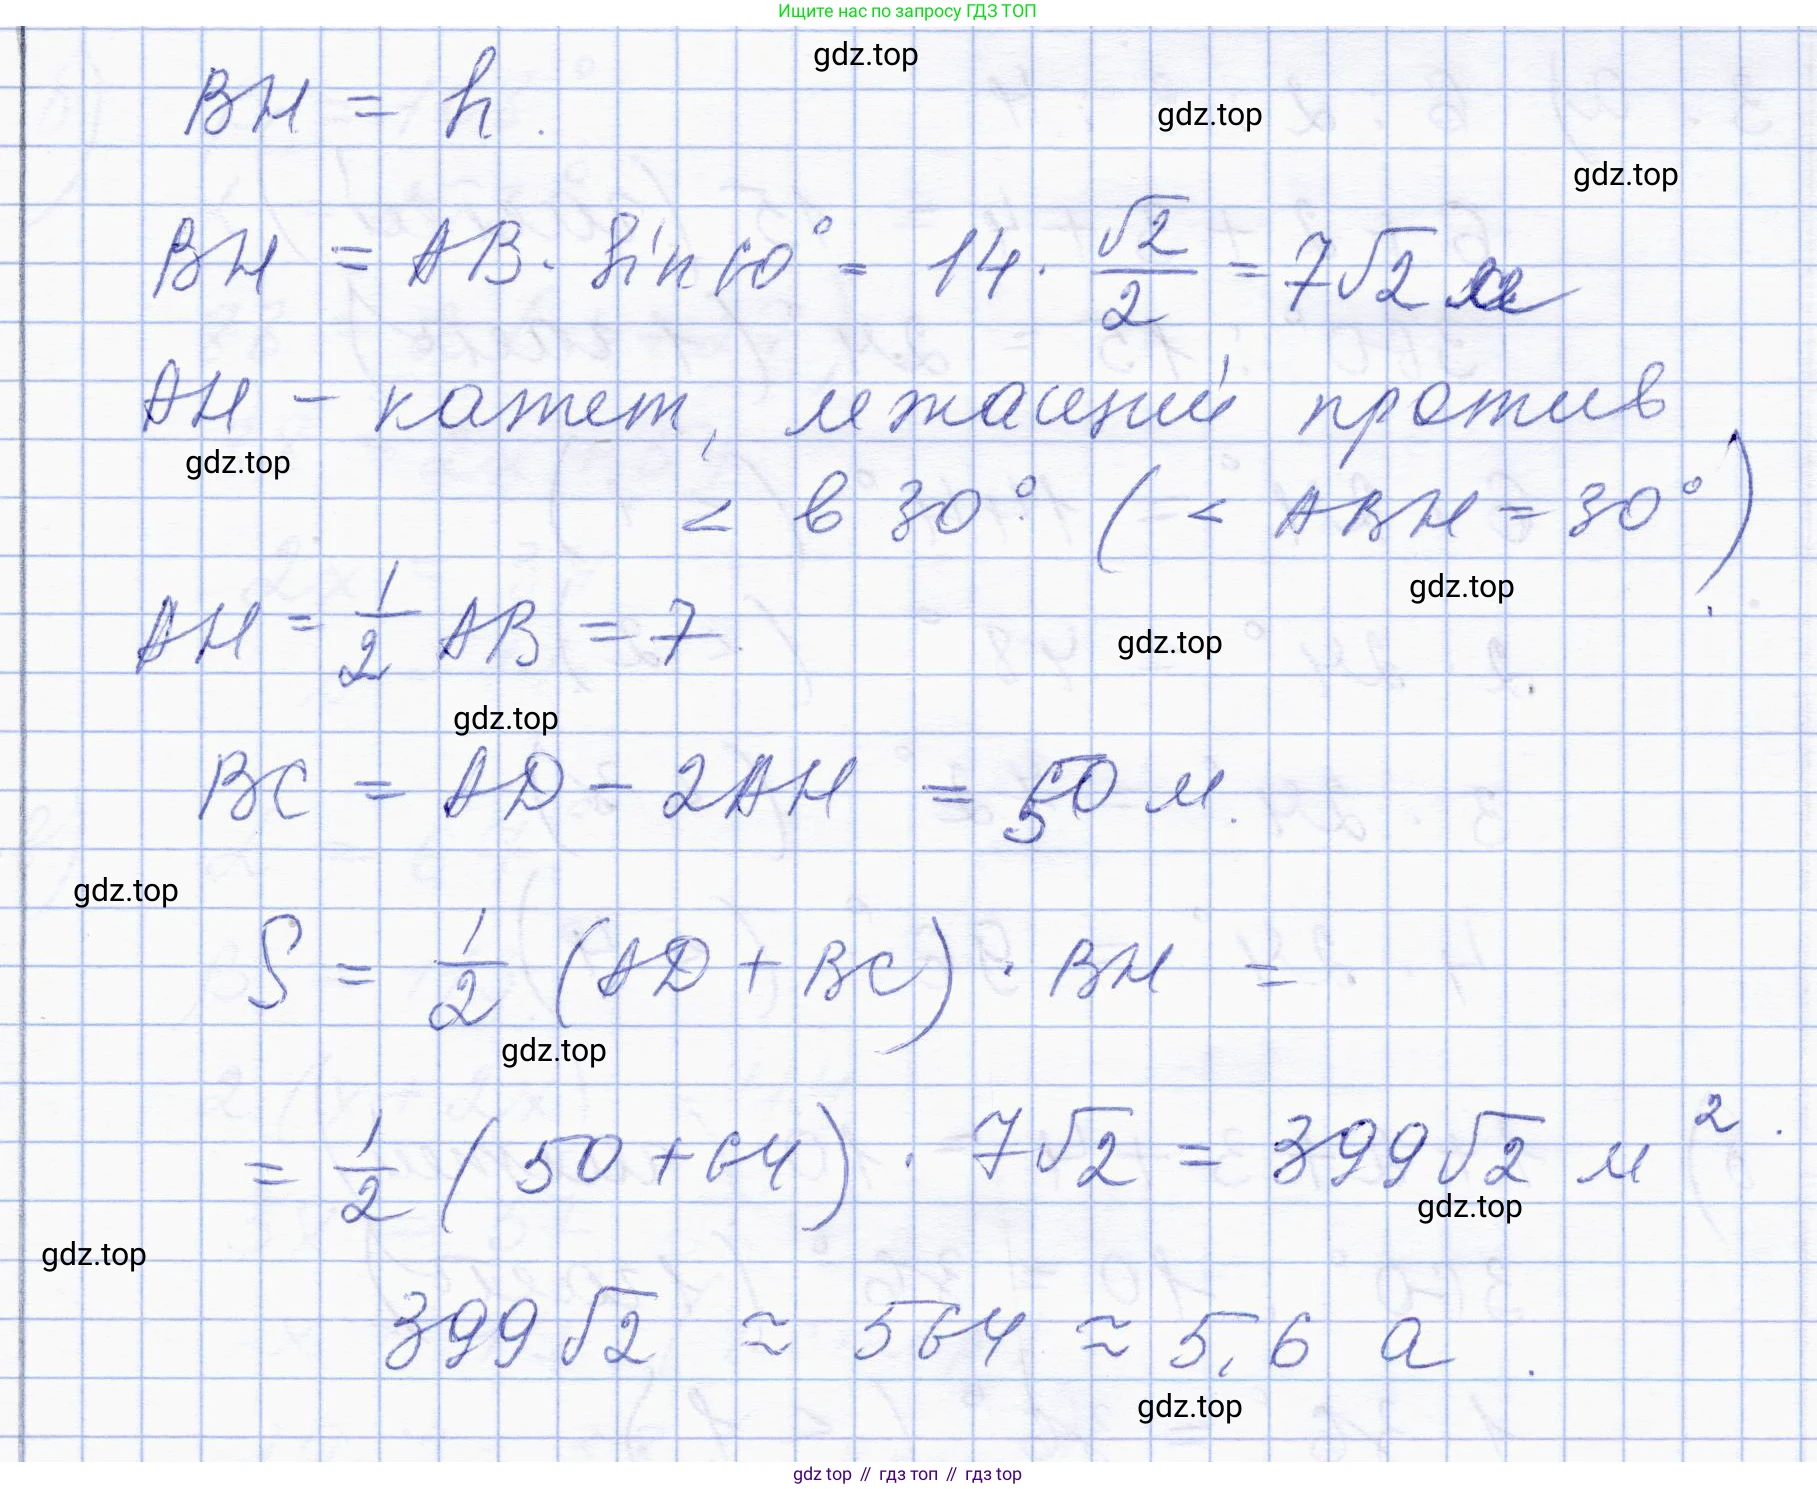 Ищите нас по запросу ГДЗ ТОП
gdz.top
BH = h.
gdz.top
gdz.top
BH = AB · sin 60° = 14 · √2/2 = 7√2 м
AH – катет, лежащий против
gdz.top
< в 30°. (< ABH = 30°).
gdz.top
AH = 1/2 AB = 7.
gdz.top
gdz.top
BC = AD – 2AH = 50 м.
gdz.top
S = 1/2 (AD + BC) · BH =
gdz.top
= 1/2 (50 + 64) · 7√2 = 399√2 м².
gdz.top
gdz.top
399√2 ≈ 564 ≈ 5,6 а.
gdz.top
gdz top // гдз топ // гдз top